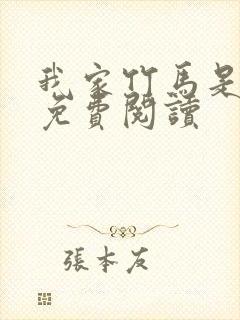 我家竹馬是
免費閱讀
張本友